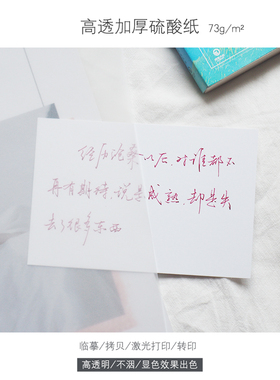 高透加厚硫酸纸 73g/m²
经历沧桑以后，对谁都不
再有期待，说是成熟，却是失
去了很多东西
临摹/拷贝/激光打印/转印
高透明/不洇/显色效果出色